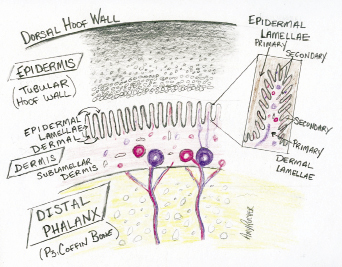 Dorsal Hoof Wall
Epidermis
(Tubular
Hoof Wall)
Epidermal
Lamellae
Dermal
Dermis
Sublamellar
Dermis
Distal
Phalanx
(P3, Coffin Bone)
Epidermal
Lamellae
Primary
Secondary
Secondary
Primary
Dermal
Lamellae